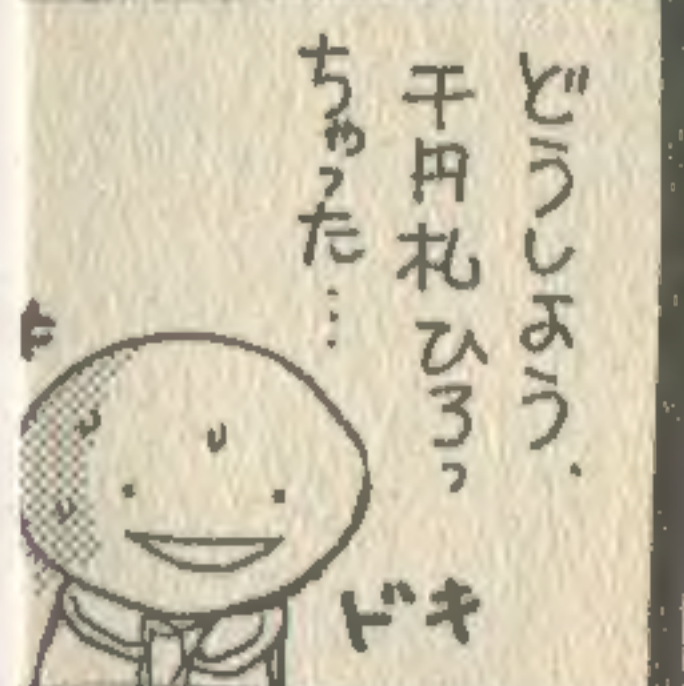 どうしよう、
千円札ひろっ
ちゃった…
ドキ